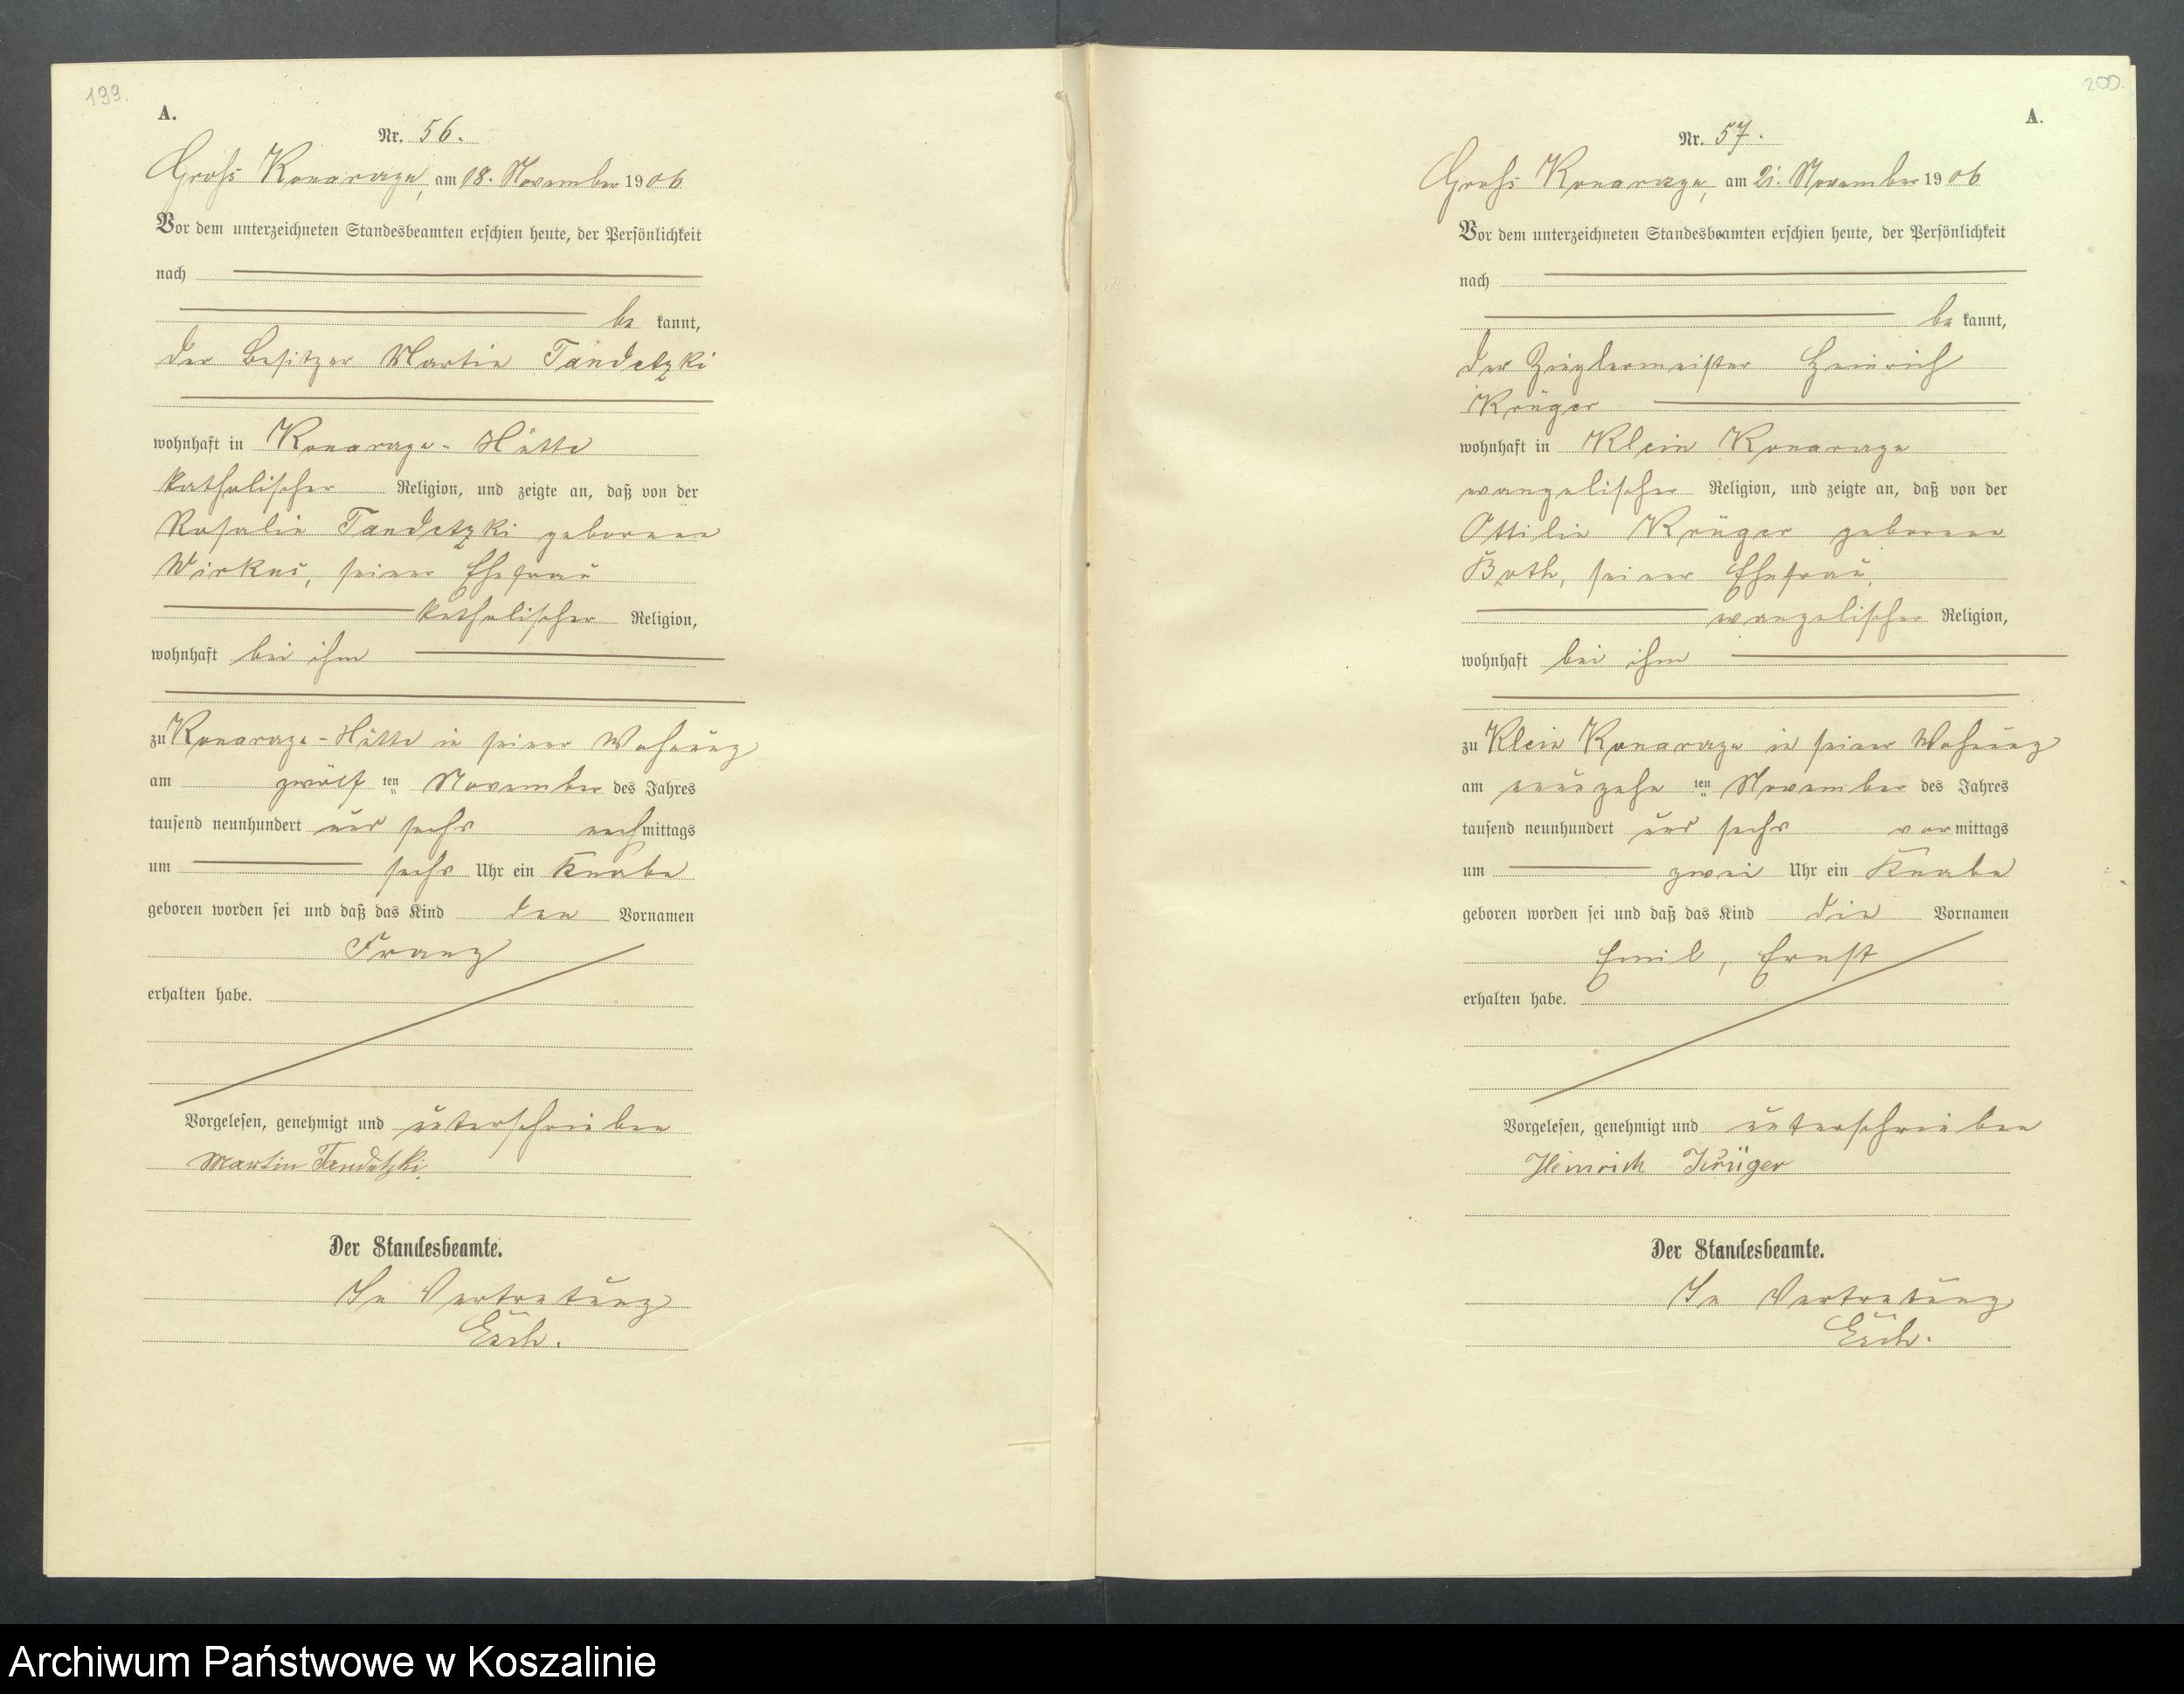 199.
A.
Nr. 56.
Gross Konarczyn, am 18. November 1906
Vor dem unterzeichneten Standesbeamten erschien heute, der Persönlichkeit
nach
be kannt,
der Besitzer Martin Tandetzki
wohnhaft in Hütte
katholischer Religion, und zeigte an, daß von der
Rosalie Tandetzki geborenen
Wirkus, seiner Ehefrau
katholischer Religion,
wohnhaft bei ihm
zu Hütte in seiner Wohnung
am zwölf ten November des Jahres
tausend neunhundert und sechs nachmittags
um sechs Uhr ein Knabe
geboren worden sei und daß das Kind den Vornamen
Franz
erhalten habe.
Vorgelesen, genehmigt und unterschrieben
Martin Tandetzki.
Der Standesbeamte.
In Vertretung
200.
A.
Nr. 57.
Gross Konarczyn, am 21. November 1906
Vor dem unterzeichneten Standesbeamten erschien heute, der Persönlichkeit
nach
be kannt,
der Zieglermeister Heinrich
Krüger
wohnhaft in Klein
evangelischer Religion, und zeigte an, daß von der
Ottilie Krüger geborenen
Both, seiner Ehefrau,
evangelischer Religion,
wohnhaft bei ihm
zu Klein in seiner Wohnung
am neunzehn ten November des Jahres
tausend neunhundert und sechs vormittags
um zwei Uhr ein Knabe
geboren worden sei und daß das Kind die Vornamen
Emil, Ernst
erhalten habe.
Vorgelesen, genehmigt und unterschrieben
Heinrich Krüger
Der Standesbeamte.
In Vertretung
Archiwum Państwowe w Koszalinie